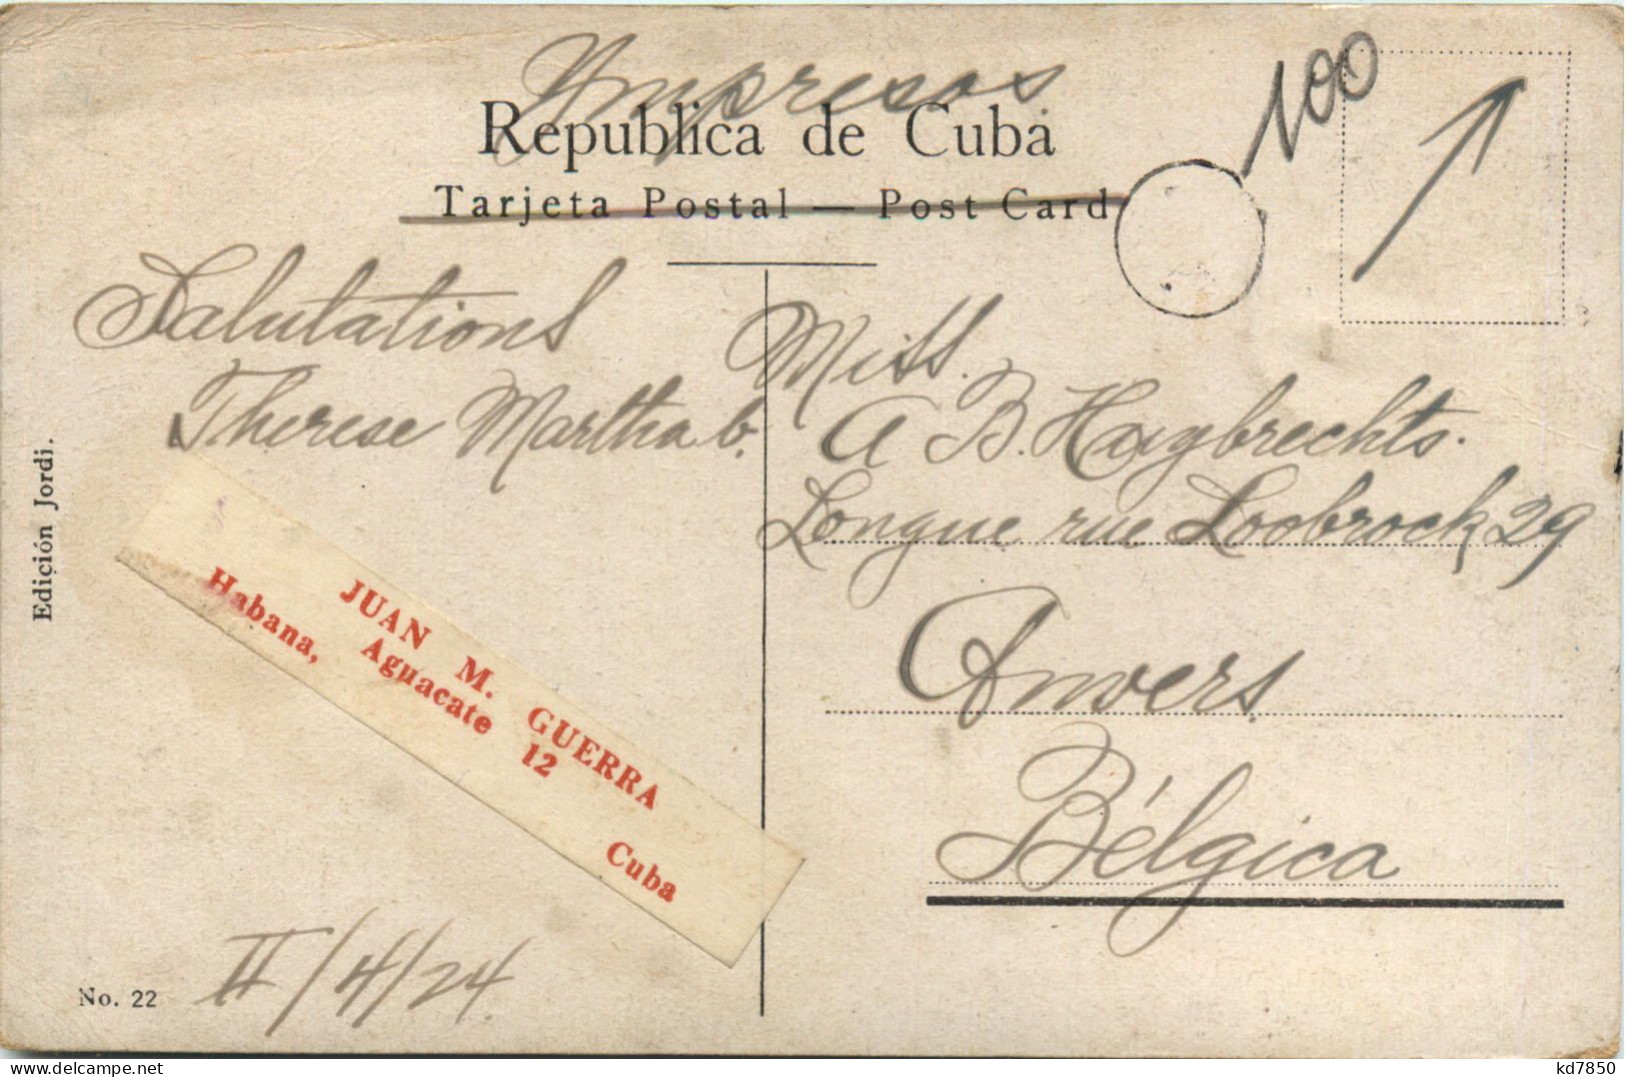 Impresos
100
Republica de Cuba
Tarjeta Postal — Post Card
Salutations
Therese Martha b.
Miss.
A B. Huybrechts.
Longue rue Loobrock 29
Anvers
Bélgica
JUAN M. GUERRA
Habana, Aguacate 12
Cuba
II/4/24.
Edición Jordi.
No. 22
delcampe.net
kd7850